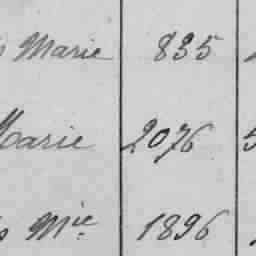 Marie 835
Marie 2076 5
Mie 1896